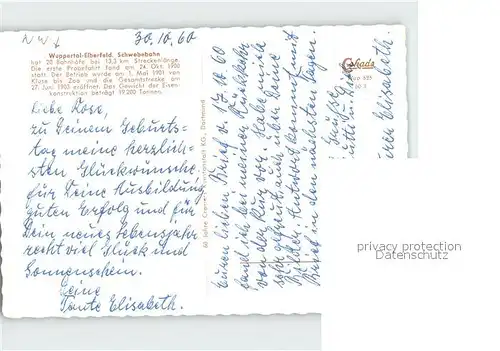 30.10.60
Wuppertal-Elberfeld, Schwebebahn
hat 20 Bahnhöfe bei 13,3 km Streckenlänge.
Die erste Probefahrt fand am 24. Okt. 1900
statt. Der Betrieb wurde am 1. Mai 1901 von
Kluse bis Zoo und die Gesamtstrecke am
27. Juni 1903 eröffnet. Das Gewicht der Eisen-
konstruktion beträgt 19200 Tonnen.
Liebe Rose,
zu Deinem Geburts-
tag meine herzlich-
sten Glückwünsche.
Für Deine Ausbildung
guten Erfolg und für
Dein neues Lebensjahr
recht viel Glück und
Sonnenschein.
Deine
Tante Elisabeth.
60 Jahre Cramers Kunstanstalt KG., Dortmund
Euren lieben Brief v. 17.10.60
fand ich bei meiner Rückkehr
von der Kur vor. Habe mich
sehr gefreut, auch über die
Bilder. Antwort kommt mit
Brief in den nächsten Tagen.
Eurer Elisabeth.
Cekade
privacy protection
Datenschutz